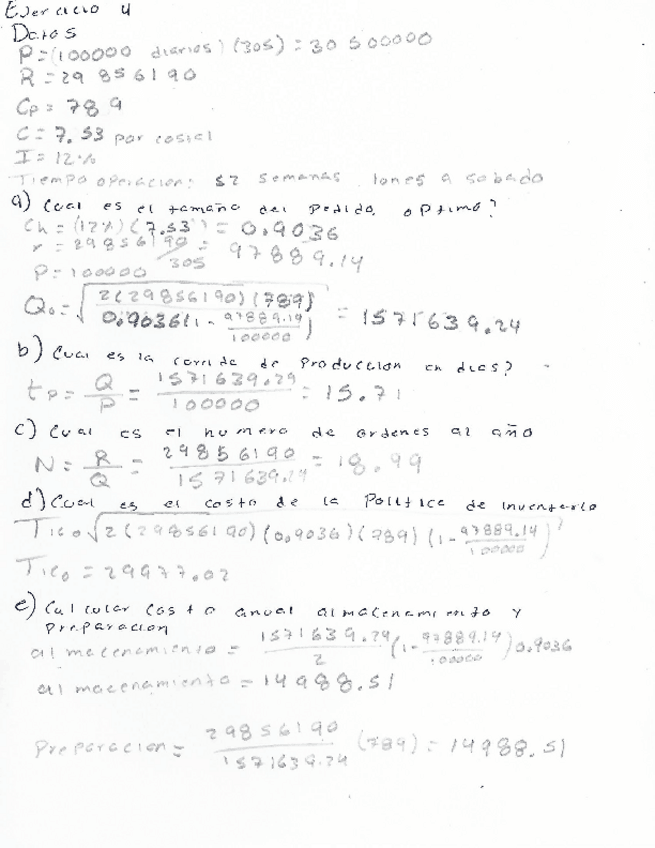 Ejercicio 4
Datos
P=(100000 diarios) (305) = 30 500000
R = 29 856190
Cp = 789
C = 7.53 por costal
I = 12%
Tiempo operacion: 52 semanas lones a sabado
a) Cual es el tamaño del pedido optimo?
Ch = (12%) (7.53) = 0.9036
r = 29856190/305 = 97889.14
P = 100000
Qo = √(2(29856190)(789) / 0.9036(1 - 97889.14/100000)) = 1571639.24
b) Cual es la corrida de Produccion en dias?
tp = Q/P = 1571639.24/100000 = 15.71
c) Cual es el numero de ordenes al año
N = R/Q = 29856190/1571639.24 = 18.99
d) Cual es el costo de la Politica de inventario?
TICo √2(29856190)(0.9036)(789)(1 - 97889.14/100000)
TICo = 29977.02
e) Calcular Costo anual almacenamiento y
Preparacion
almacenamiento = 1571639.24/2 (1 - 97889.14/100000) 0.9036
almacenamiento = 14988.51
Preparacion = 29856190/1571639.24 (789) = 14988.51